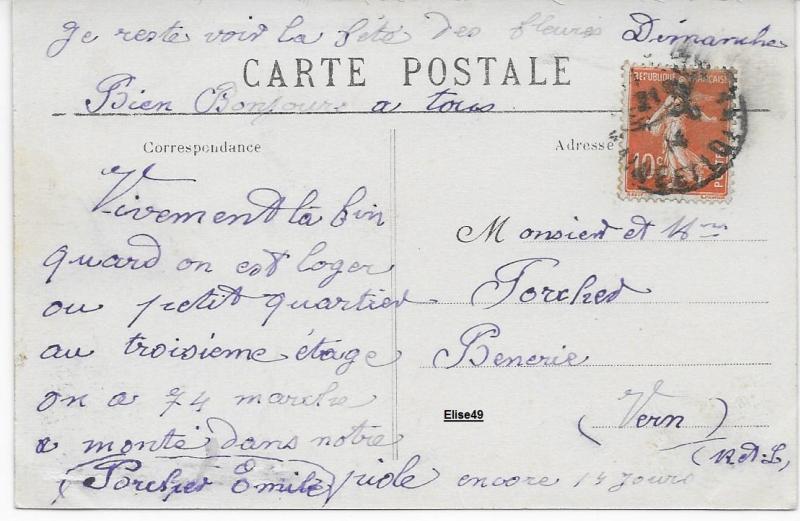 Je reste voir la fete des fleures Dimanche
CARTE POSTALE
Bien Bonjours a tous
Correspondance
Adresse
REPUBLIQUE FRANÇAISE
10 c
POSTES
Vivement la fin
quard on est loger
ou petit quartier
au troisieme étage
on a 74 marche
a monté dans notre
piole encore 14 jours
Porcher Emile
Monsieur et Mme
Porcher
Benerie
(Vern)
(M.&.L)
Elise49